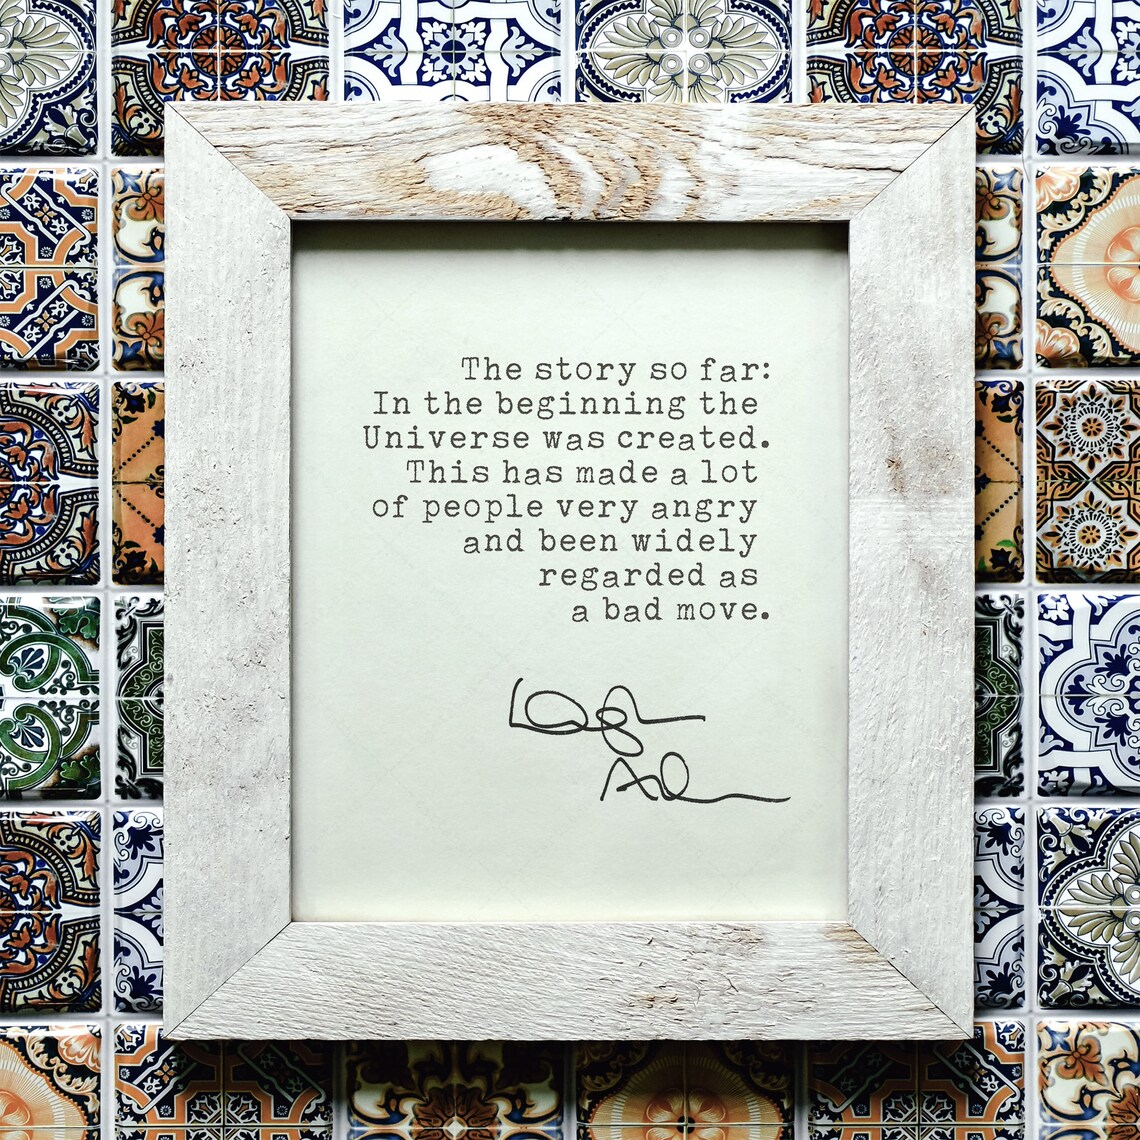 The story so far:
In the beginning the
Universe was created.
This has made a lot
of people very angry
and been widely
regarded as
a bad move.